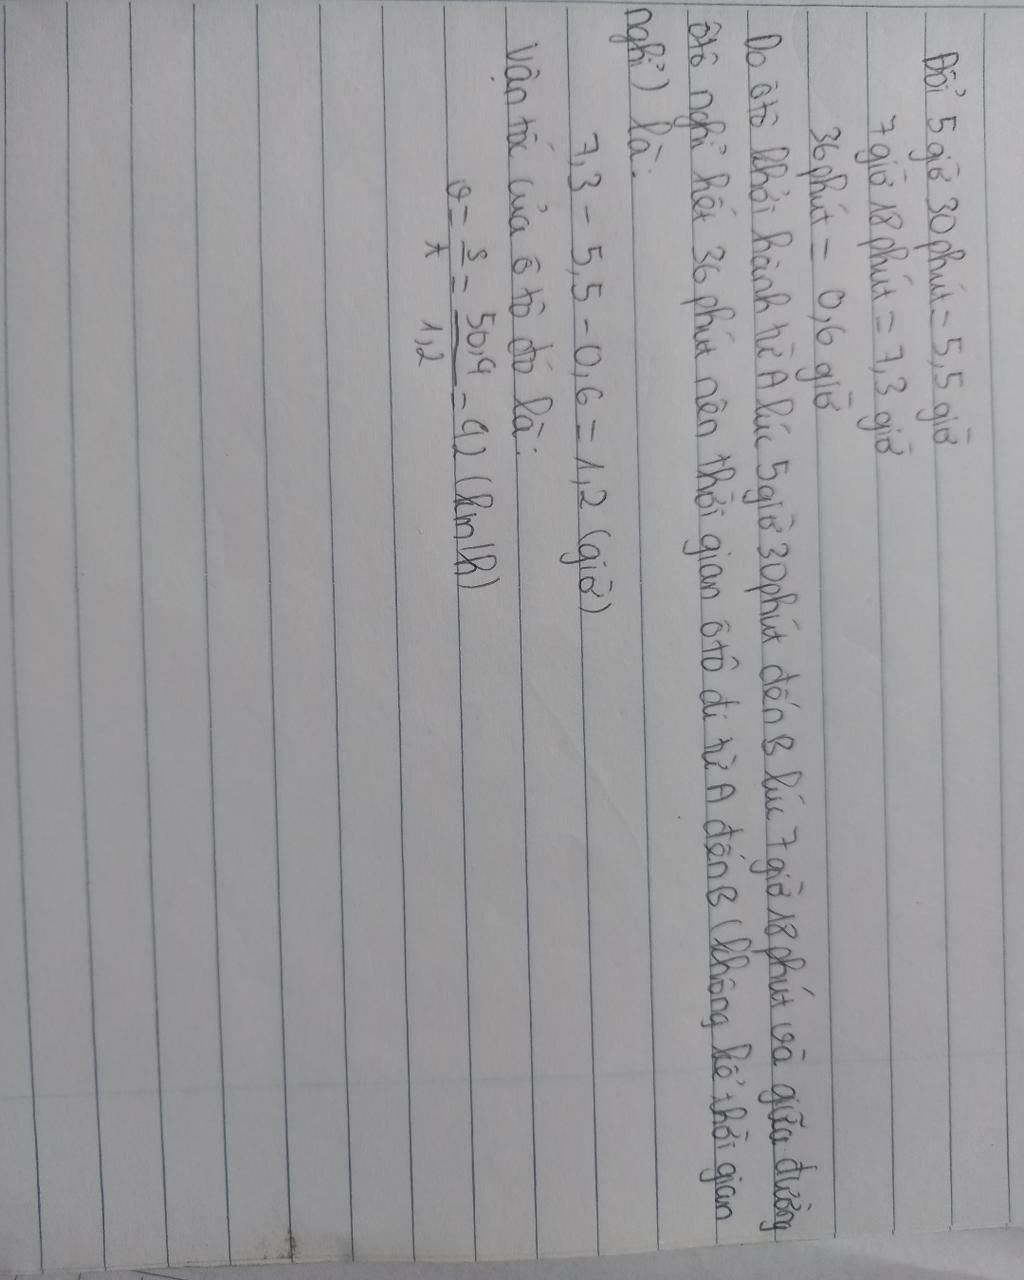 Đổi 5 giờ 30 phút = 5,5 giờ
7 giờ 18 phút = 7,3 giờ
36 phút = 0,6 giờ
Do ôtô khởi hành từ A lúc 5 giờ 30 phút đến B lúc 7 giờ 18 phút và giữa đường
ôtô nghỉ hết 36 phút nên thời gian ôtô đi từ A đến B (không kể thời gian
nghỉ) là:
7,3 - 5,5 - 0,6 = 1,2 (giờ)
Vận tốc của ô tô đó là:
v = s/t = 50,4/1,2 = 42 (km/h)